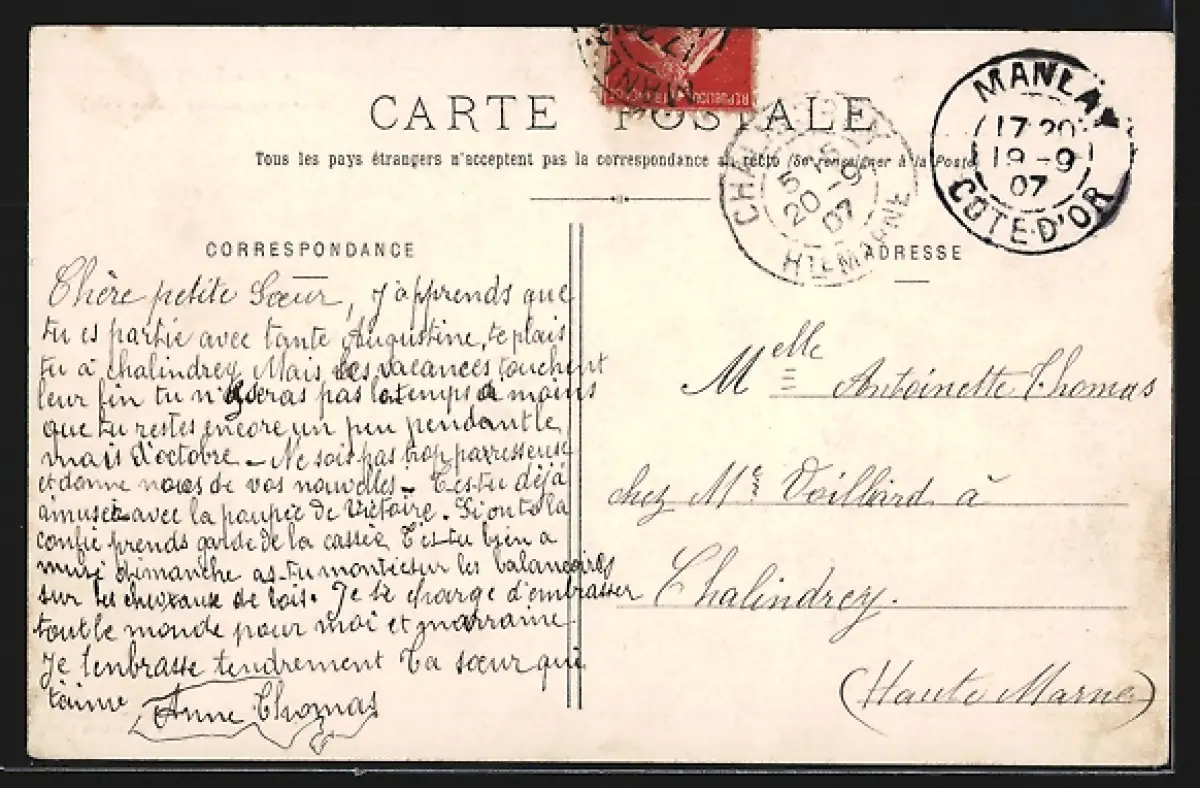 CARTE POSTALE
Tous les pays étrangers n'acceptent pas la correspondance au recto (Se renseigner à la Poste
MANLAY
17 20
19 - 9
07
COTE-D'OR
CHALINDREY
5 15
20 - 9
07
HTE MARNE
REPUBLIQUE
CORRESPONDANCE
Chère petite Sœur, j'apprends que
tu es partie avec tante Augustine, te plais
tu à chalindrey Mais les vacances touchent
leur fin tu n'y seras pas longtemps a moins
que tu restes encore un peu pendant le
mois d'octobre - Ne sois pas trop parresseuse
et donne nous de vos nouvelles - t'es-tu déjà
amusée avec la poupée de Victoire. Si on te la
confie prends garde de la cassée T'es-tu bien a
musé dimanche as-tu montée sur les balançoires
sur les chevaux de bois. Je te charge d'embrasser
tout le monde pour moi et marraine
Je t'enbrasse tendrement Ta sœur qui
t'aime Anne Thomas
ADRESSE
Melle Antoinette Thomas
chez Me Voillard à
Chalindrey.
(Haute Marne)